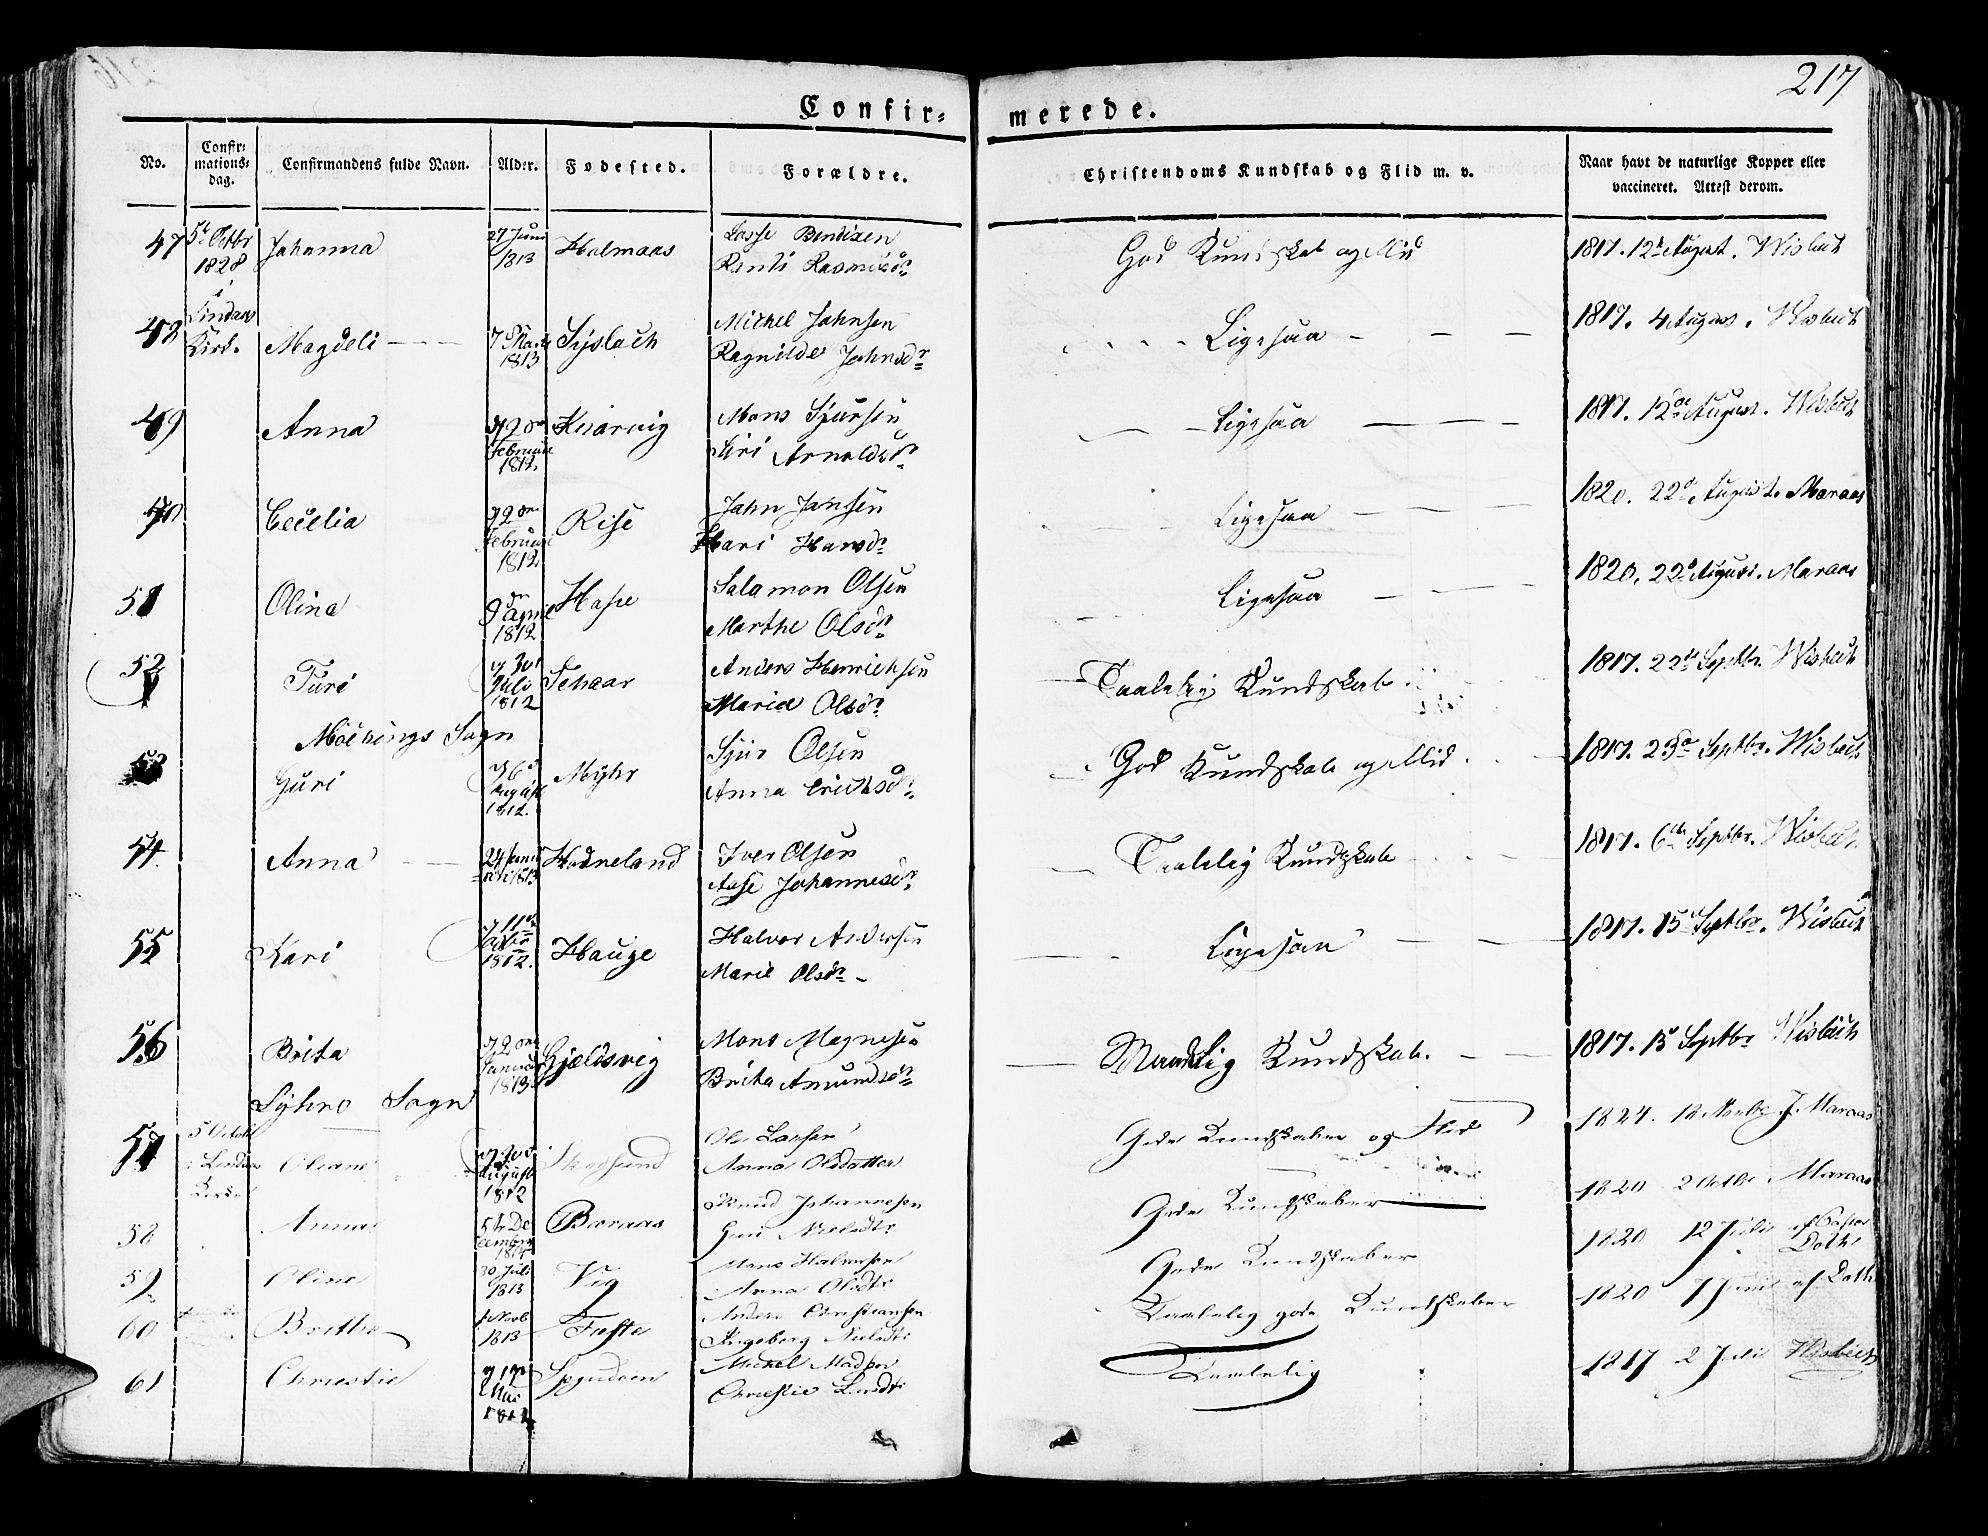 217
Confir- merede.
No. Confir-mations-dag. Confirmandens fulde Navn. Alder. Fødested. Forældre. Christendoms Kundskab og Flid m. v. Naar havt de naturlige Kopper eller vaccineret. Attest derom.
47 5te Octbr 1828 i Lindaas Kirk. Johanna 27 Juni 1813 Holmaas Lasse Bendixen
Ranti Rasmusdr God Kundskab og Flid 1817. 12te August. Wisbech
48 Magdeli 7 1813 Syslach Michel Johnsen
Ragnilde Johnsdr Ligesaa 1817. 4 August. Wisbech
49 Anna Februari 1812 Knarvig Mons Sjursen
Siri Arnoldsdr Ligesaa 1817. 12te August. Wisbech
50 Cecelia Februari 1812 Rise John Jansen
Kari Hansdr Ligesaa 1820. 22de August. Maraas
51 Olina April 1812 Hope Salamon Olsen
Marthe Olsdr Ligesaa 1820. 22de August. Maraas
52 Turi Juli 1812 Schaar Anders Henrichsen
Maria Olsdr Taalelig Kundskab. 1817. 22de Septbr. Wisbech
Moehrings Sogn
53 Guri August 1812. Myhr Sjur Olsen
Anna Erichsdr God Kundskab og Flid. 1817. 23de Septbr. Wisbech
54. Anna 24 Januari 1813 Hodneland Iver Olsen
Aase Johannesdr Taalelig Kundskab 1817. 6te Septbr. Wisbech
55 Kari 1812. Hauge Halvor Andersen
Marie Olsdr Ligesaa 1817. 15de Septbr. Wisbech
56 Brita Januari 1813 Gjeldsvig Mons Magnesen
Brita Amundsdr Maadelig Kundskab. 1817. 15 Septbr Wisbech
Lyhro Sogn
57 5 Octob i Lindaas Kirke Oliane August 1812 Skodsund Ole Larsen
Anna Olsdatter Gode Kundskaber og Flid 1824. Maraas
58 Anna December Baraas Knud Johannesen
Guri Nielsdtr Gode Kundskaber 1820 2 Octbr Maraas
59 Oline 30 Juli 1813 Vig Mons Halvorsen
Anna Olsdtr Gode Kundskaber 1820 12 Juli af Pastor Dothe
60 Brithe Novb 1813 Tofte Anders Christiansen
Ingeborg Nielsdtr Taalelig gode Kundskaber 1820 7 Juni af Dothe
61 Christie Michel Madsen
Christie Taalelig 1817 2 Juli Wisbech